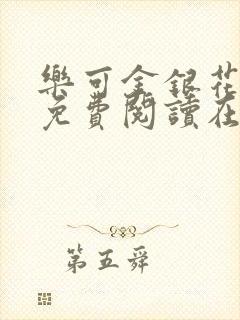 樂可金銀花
免費閱讀在
第五舜